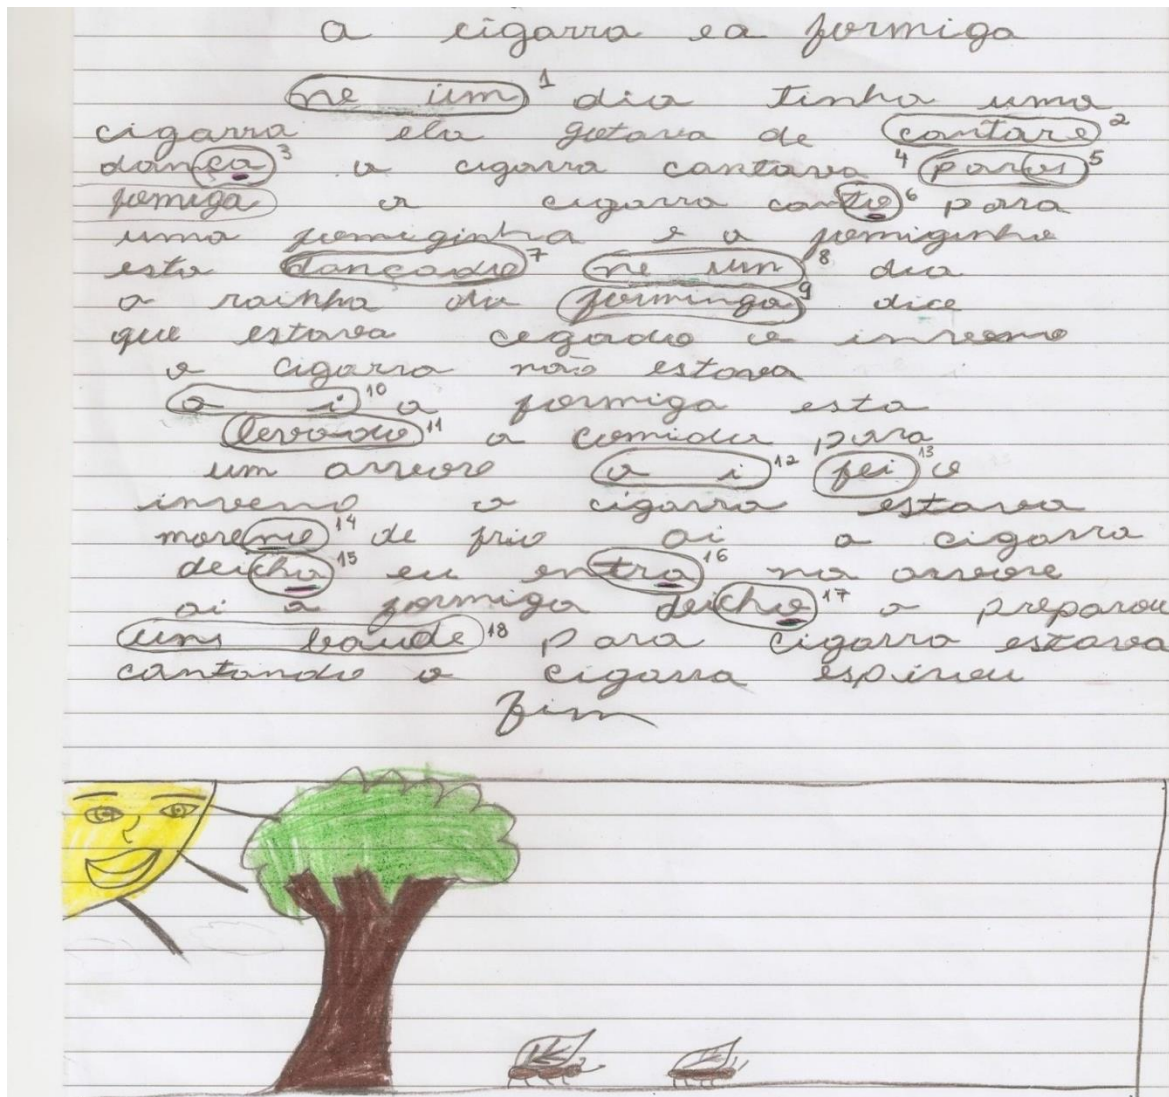 a cigarra ea formiga
ne um 1 dia tinha uma
cigarra ela gotava de cantare 2
dança 3 a cigarra cantava 4 paras 5
fomiga a cigarra canto 6 para
uma fomiginha e a fomiginha
esta dançado 7 ne um 8 dia
a rainha da forminga 9 dice
que estava cegado o inverno
a cigarra não estava
a i 10 a formiga esta
levado 11 a comida para
um arvore a i 12 fei 13 o
inveno a cigarra estava
moreno 14 de frio ai a cigarra
deicha 15 eu entra 16 na arvore
ai a formiga deicho 17 a preparou
ums baude 18 para cigarra estava
cantando a cigarra espirou
fim